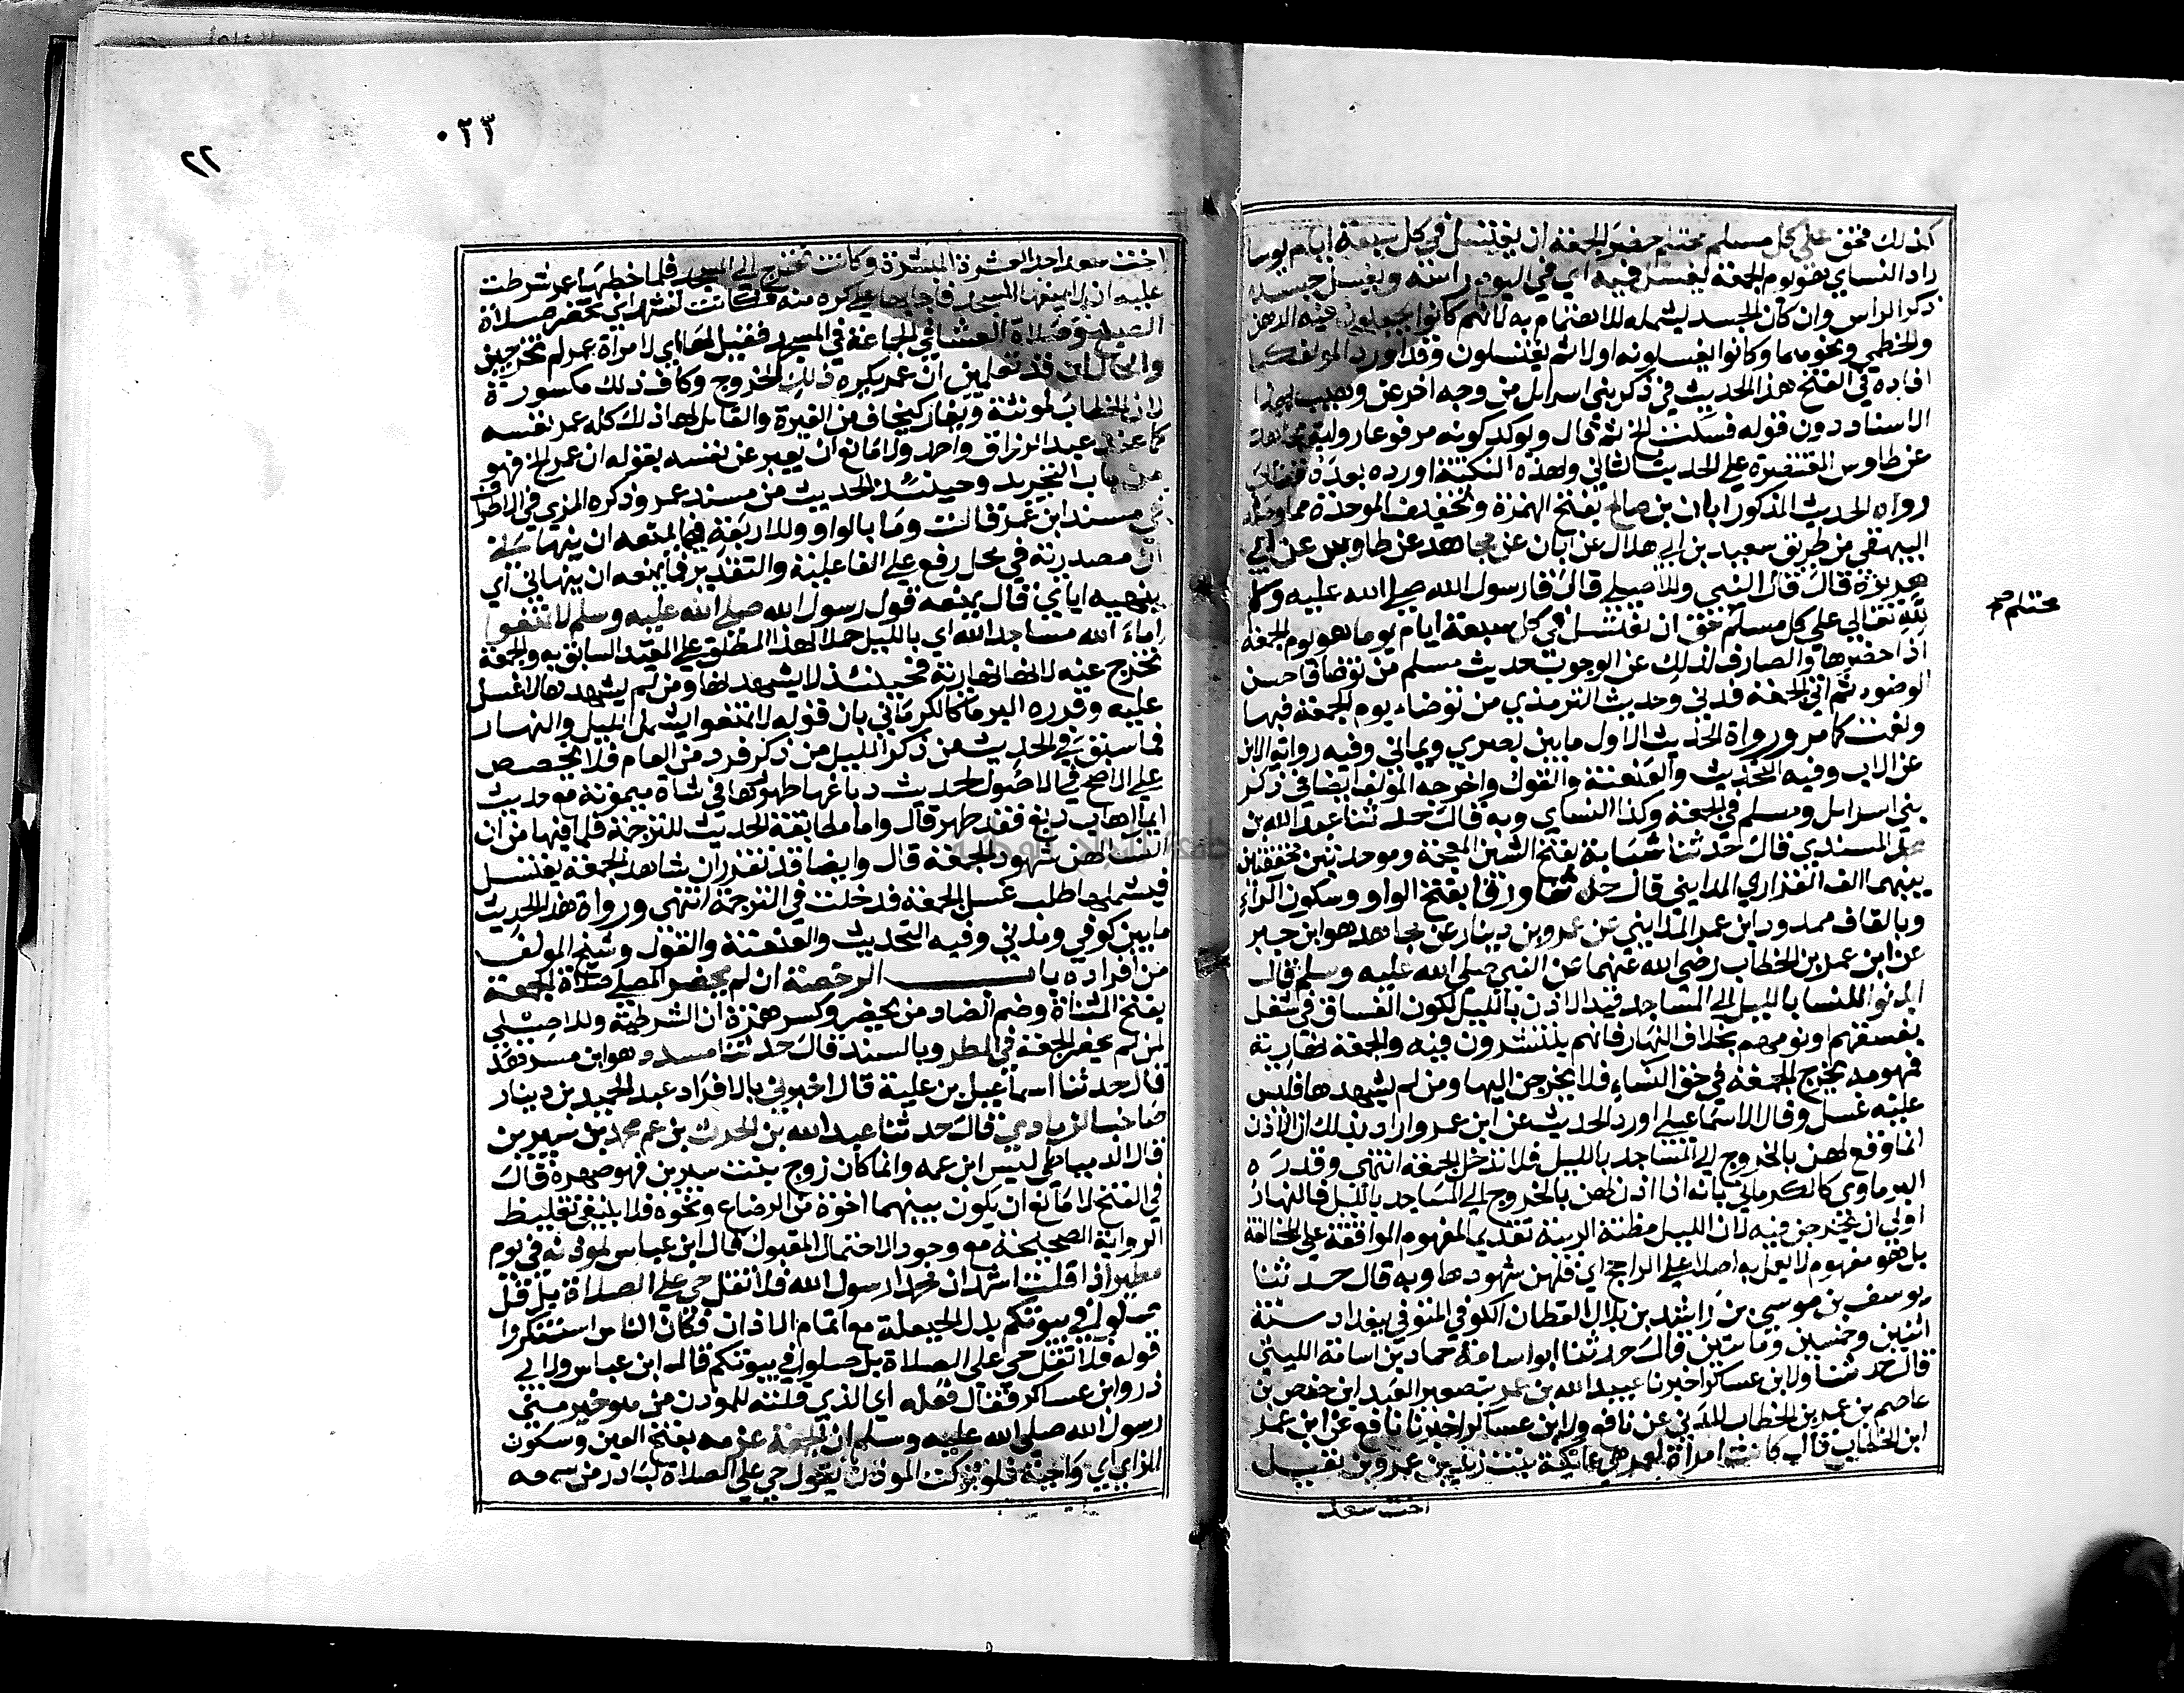 كذلك فحق على كل مسلم محتلم حضر الجمعة ان يغتسل في كل سبعة ايام يوما
زاد النساي هو يوم الجمعة يغسل فيه اي في اليوم راسه ويغسل جسده
ذكر الراس وان كان الجسد يشمله للاهتمام به لانهم كانوا يجعلون فيه الدهن
والخطمي ونحوهما وكانوا يغسلونه اولا ثم يغتسلون وقد اورد المولف كما
افاده في الفتح هذا الحديث في ذكر بني اسرايل من وجه اخر عن وهيب بهذا
الاسناد دون قوله فسكت الخ ثم قال ويوكد كونه مرفوعا رواية مجاهد
عن طاوس المقتصرة على الحديث الثاني ولهذه النكتة اورده بعده فقال
رواه الحديث المذكور ابان بن صالح بفتح الهمزة وتخفيف الموحدة مما وصله
البيهقي من طريق سعيد بن ابي هلال عن ابان عن مجاهد عن طاوس عن ابي
هريرة قال قال النبي وللاصيلي قال قال رسول الله صلى الله عليه وسلم
لله تعالى على كل مسلم حق ان يغتسل في كل سبعة ايام يوما هو يوم الجمعة
محتلم صح
اذا حضرها والصارف لذلك عن الوجوب حديث مسلم من توضا فاحسن
الوضوء ثم اتى الجمعة فدنى وحديث الترمذي من توضاء يوم الجمعة فبها
ونعمت كما مر ورواة الحديث الاول ما بين بصري ويماني وفيه رواية الابن
عن الاب وفيه التحديث والعنعنة والقول واخرجه المولف ايضا في ذكر
بني اسرايل ومسلم في الجمعة وكذا النساي وبه قال حدثنا عبد الله بن
محمد المسندي قال حدثنا شبابة بفتح الشين المعجمة وموحدتين مخففتين
بينهما الف الفزاري المدايني قال حدثنا ورقا بفتح الواو وسكون الراء
وبالقاف ممدود ابن عمر المدايني عن عمرو بن دينار عن مجاهد هو ابن جبر
عن ابن عمر بن الخطاب رضي الله عنهما عن النبي صلى الله عليه وسلم قال
ايذنوا للنسا بالليل الى المساجد قيد الاذن بالليل لكون الفساق في شغل
بفسقهم ونومهم بخلاف النهار فانهم ينتشرون فيه والجمعة نهارية
فمهومه يخرج الجمعة في حق النساء فلا يخرجن اليها ومن لم يشهدها فليس
عليه غسل وقال الاسماعيلي اورد الحديث عن ابن عمر واراد بذلك ان الاذن
انما وقع لهن بالخروج الى المساجد بالليل فلا تدخل الجمعة انتهى وقدره
البرماوي كالكرماني بانه اذا اذن لهن بالخروج الى المساجد بالليل فالنهار
اولى ان يخرجن فيه لان الليل مظنة الريبة تقديما لمفهوم الموافقة على المخالفة
بل هو مفهوم لا يعمل به اصلا على الراجح اي فلهن شهودها وبه قال حدثنا
يوسف بن موسى بن راشد بن بلال القطان الكوفي المتوفى ببغداد سنة
اثنين وخمسين وماتين قال حدثنا ابو اسامة حماد بن اسامة الليثي
قال حدثنا ولابن عساكر اخبرنا عبيد الله بن عمر بتصغير العبد ابن حفص بن
عاصم بن عمر بن الخطاب المدني عن نافع ولابن عساكر اخبرنا نافع عن ابن عمر
ابن الخطاب قال كانت امراة لعمر هي عاتكة بنت زيد بن عمرو بن نفيل
اخت سعد
٠٢٣
٢٢
اخت سعد احد العشرة المبشرة وكانت تخرج الى المسجد فلما خطبها عمر شرطت
عليه ان لا يمنعها المسجد فاجابها على كره منه فكانت تشهد اي تحضر صلاة
الصبح وصلاة العشا في الجماعة في المسجد فقيل لها اي لامراة عمر لم تخرجين
والحال ان قد تعلمين ان عمر يكره ذلك الخروج وكاف ذلك مكسورة
لان الخطاب لمونثة ويغار كيخاف من الغيرة والقايل لها ذلك كله عمر نفسه
كما عند عبد الرزاق واحمد ولا مانع ان يعبر عن نفسه بقوله ان عمر الخ فهو
من باب التجريد وحينئذ الحديث من مسند عمر وذكره المزي في الاطراف
في مسند ابن عمر قالت وما بالواو وللاربعة فما يمنعه ان ينهاني
ان مصدرية في محل رفع على الفاعلية والتقدير فما يمنعه ان ينهاني اي
بنهيه اياي قال يمنعه قول رسول الله صلى الله عليه وسلم لا تمنعوا
اماء الله مساجد الله اي بالليل حملا لهذا المطلق على المقيد السابق به والجمعة
تخرج عنه لانها نهارية فحينئذ لا يشهدنها ومن لم يشهدها لا غسل
عليه وقدره البرما كالكرماني بان قوله لا تمنعوا يشمل الليل والنهار
فما سبق في الحديث من ذكر الليل من ذكر فرد من العام فلا يخصص
على الاصح في الاصول لحديث دباغها طهورها في شاة ميمونة مع حديث
ايما اهاب دبغ فقد طهر قال واما مطابقة الحديث للترجمة فلما فيها من ان
النسا لهن شهود الجمعة قال وايضا قد تقرر ان شاهد الجمعة يغتسل
فيشملها طلب غسل الجمعة فدخلت في الترجمة انتهى ورواة هذا الحديث
ما بين كوفي ومدني وفيه التحديث والعنعنة والقول وشيخ المولف
من افراده باب الرخصة ان لم يحضر المصلي صلاة الجمعة
بفتح المثناة وضم الضاد من يحضر وكسر همزة ان الشرطية وللاصيلي
لمن لم يحضر الجمعة في المطر وبالسند قال حدثنا مسدد هو ابن مسرهد
قال حدثنا اسماعيل بن علية قال اخبرني بالافراد عبد الحميد بن دينار
صاحب الزيادي قال حدثنا عبد الله بن الحرث بن عم محمد بن سيرين
قال الدمياطي ليس ابن عمه وانما كان زوج بنت سيرين فهو صهره قال
في الفتح لا مانع ان يكون بينهما اخوة من الرضاع ونحوه فلا ينبغي تغليط
الرواية الصحيحة مع وجود الاحتمال المقبول قال ابن عباس لموذنه في يوم
مطير اذا قلت اشهد ان محمدا رسول الله فلا تقل حي على الصلاة بل قل
صلوا في بيوتكم بدل الحيعلة مع اتمام الاذان فكان الناس استنكروا
قوله فلا تقل حي على الصلاة بل صلوا في بيوتكم قال ابن عباس ولابي
ذر وابن عساكر فقال فعله اي الذي قلته للموذن من هو خير مني
رسول الله صلى الله عليه وسلم ان الجمعة عزمه بفتح العين وسكون
الزاي اي واجبة فلو تركت الموذن يقول حي على الصلاة لبادر من سمعه